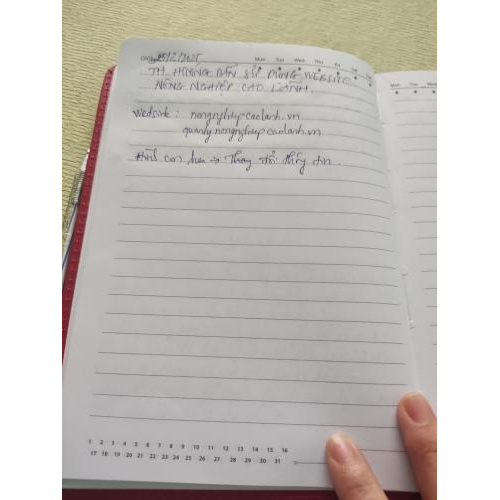 Date 05/2/2025 Mon Tue Wed Thu Fri Sat Sun
TH HƯỚNG DẪN SỬ DỤNG WEBSITE
NÔNG NGHIỆP CAO LÃNH.
Website : nongnghiepcaolanh.vn
quanlynongnghiepcaolanh.vn
con hươu → Thay đổi thông tin.
1 2 3 4 5 6 7 8 9 10 11 12 13 14 15 16
17 18 19 20 21 22 23 24 25 26 27 28 29 30 31
Mon Tue Wed Thu